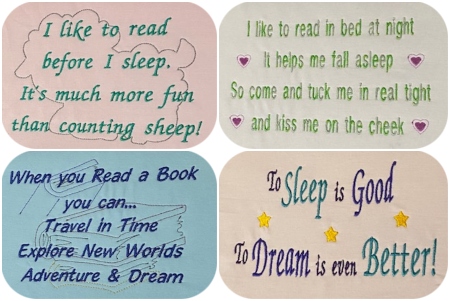 I like to read
before I sleep.
It's much more fun
than counting sheep!
I like to read in bed at night
It helps me fall asleep
So come and tuck me in real tight
and kiss me on the cheek
When you Read a Book
you can...
Travel in Time
Explore New Worlds
Adventure & Dream
To Sleep is Good
To Dream is even Better!